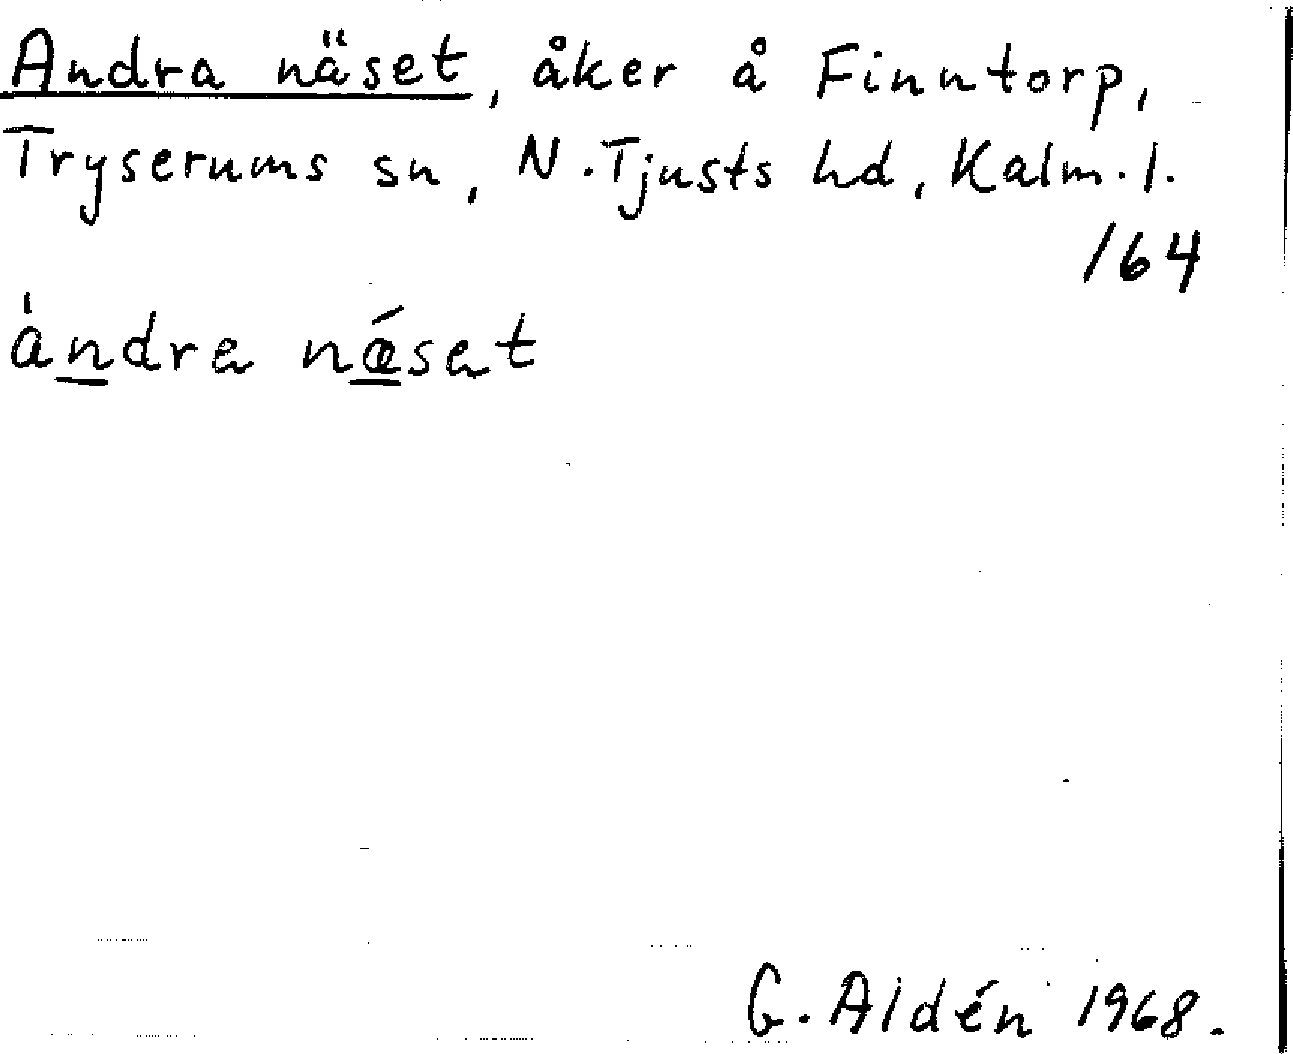 Andra näset, åker å Finntorp,
Tryserums sn, N. Tjusts hd, Kalm. l.
164
a̍n̲dra nǽ̲sat
G. Aldén 1968.